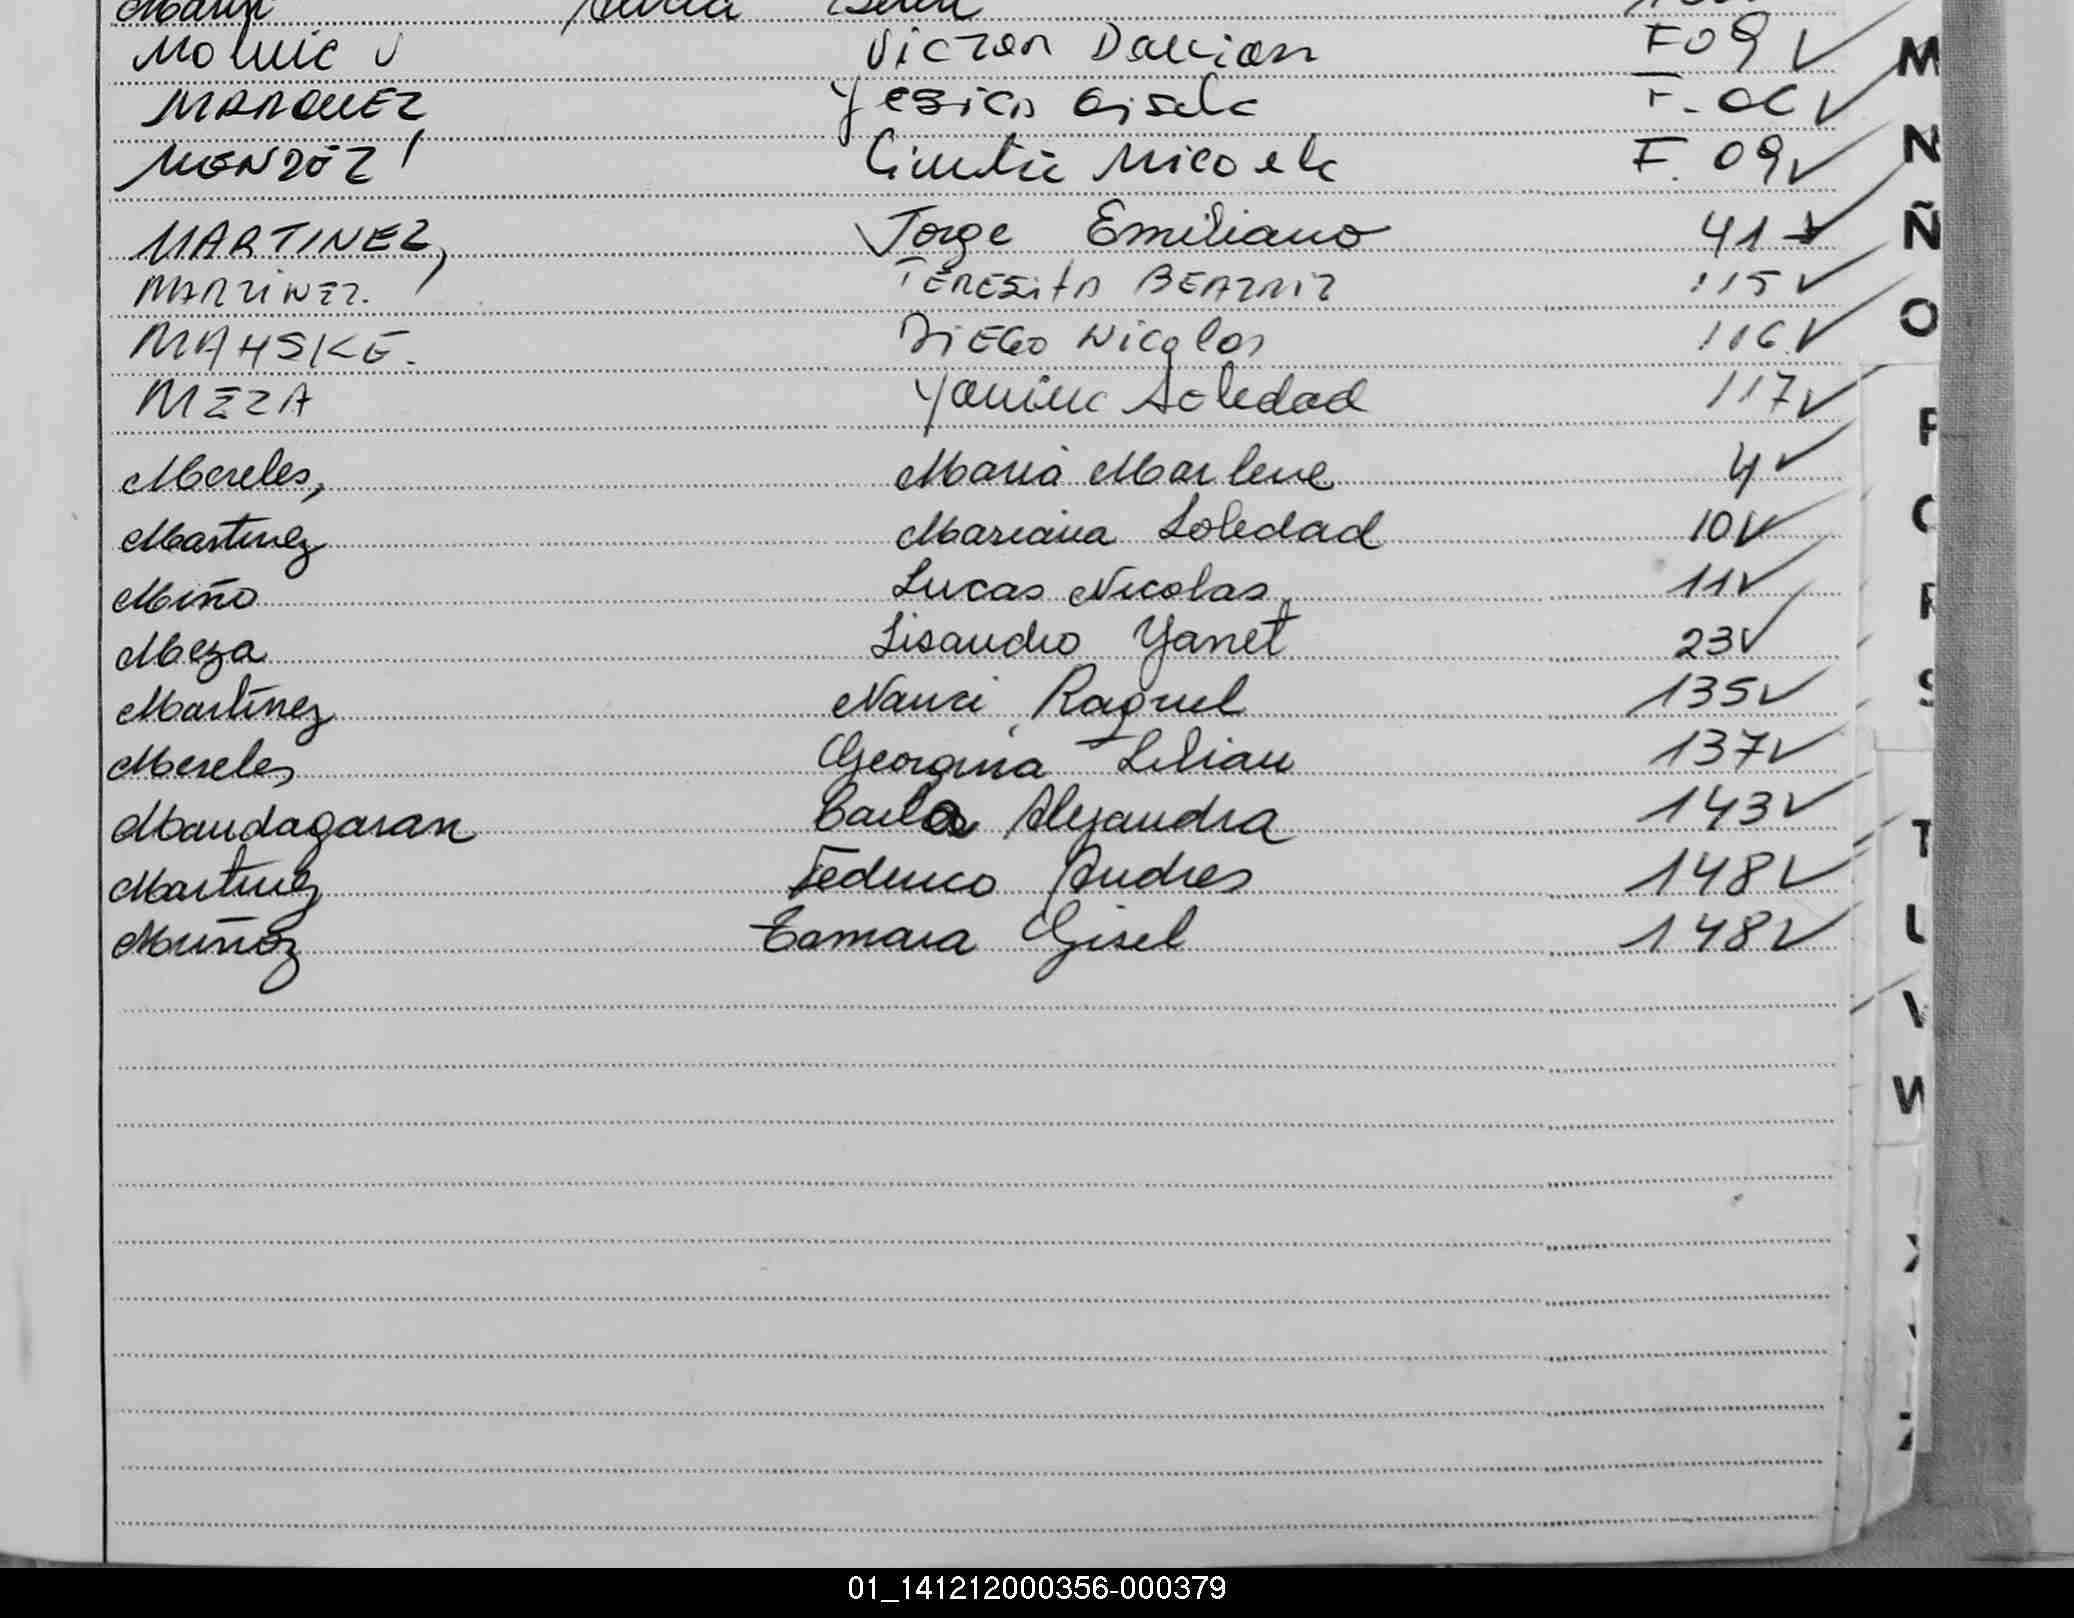 Molinic J Victor Damian F09
MARQUEZ Yesica Gisela F. 06
MENDOZ Cintia Micaela F. 09
MARTINEZ, Jorge Emiliano 41
MARTINEZ. TERESITA BEATRIZ 115
MAHSKE. DIEGO Nicolas 116
MEZA Yanina Soledad 117
Mereles, Maria Marlene 4
Martinez Mariana Soledad 10
Miño Lucas Nicolas 11
Meza Lisandro Yanet 23
Martinez Nanci Raquel 135
Mereles Georgina Lilian 137
Mandagaran Carla Alejandra 143
Martinez Federico Andres 148
Muñoz Tamara Gisel 148
M
N
Ñ
O
T
V
W
01_141212000356-000379